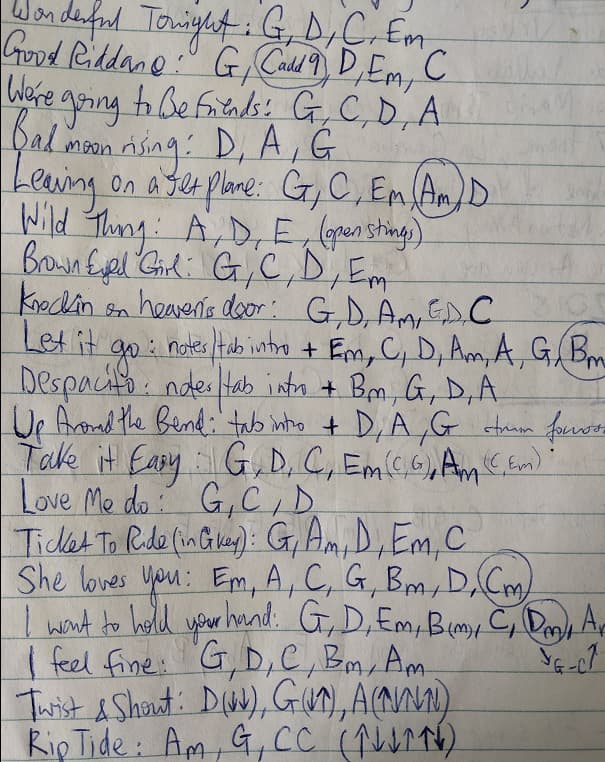 Wonderful Tonight: G, D, C, Em
Good Riddane: G, Cadd9, D, Em, C
We're going to Be Friends: G, C, D, A
Bad moon rising: D, A, G
Leaving on a Jet plane: G, C, Em, Am, D
Wild Thing: A, D, E, (open strings)
Brown Eyed Girl: G, C, D, Em
Knockin on heaven's door: G, D, Am, G, D, C
Let it go: notes/tab intro + Em, C, D, Am, A, G, Bm
Despacito: notes/tab intro + Bm, G, D, A
Up Around the Bend: tab intro + D, A, G strum
Take it Easy: G, D, C, Em (C,G), Am (C, Em)
Love Me do: G, C, D
Ticket To Ride (in G key): G, Am, D, Em, C
She loves you: Em, A, C, G, Bm, D, Cm
I want to hold your hand: G, D, Em, B(m), C, Dm, A
↘G-C↑
I feel fine: G, D, C, Bm, Am
Twist & Shout: D(↓↓), G(↓↑), A(↑↓↑↓↑↓)
Rip Tide: Am, G, CC (↑↓↓↑↑↓)